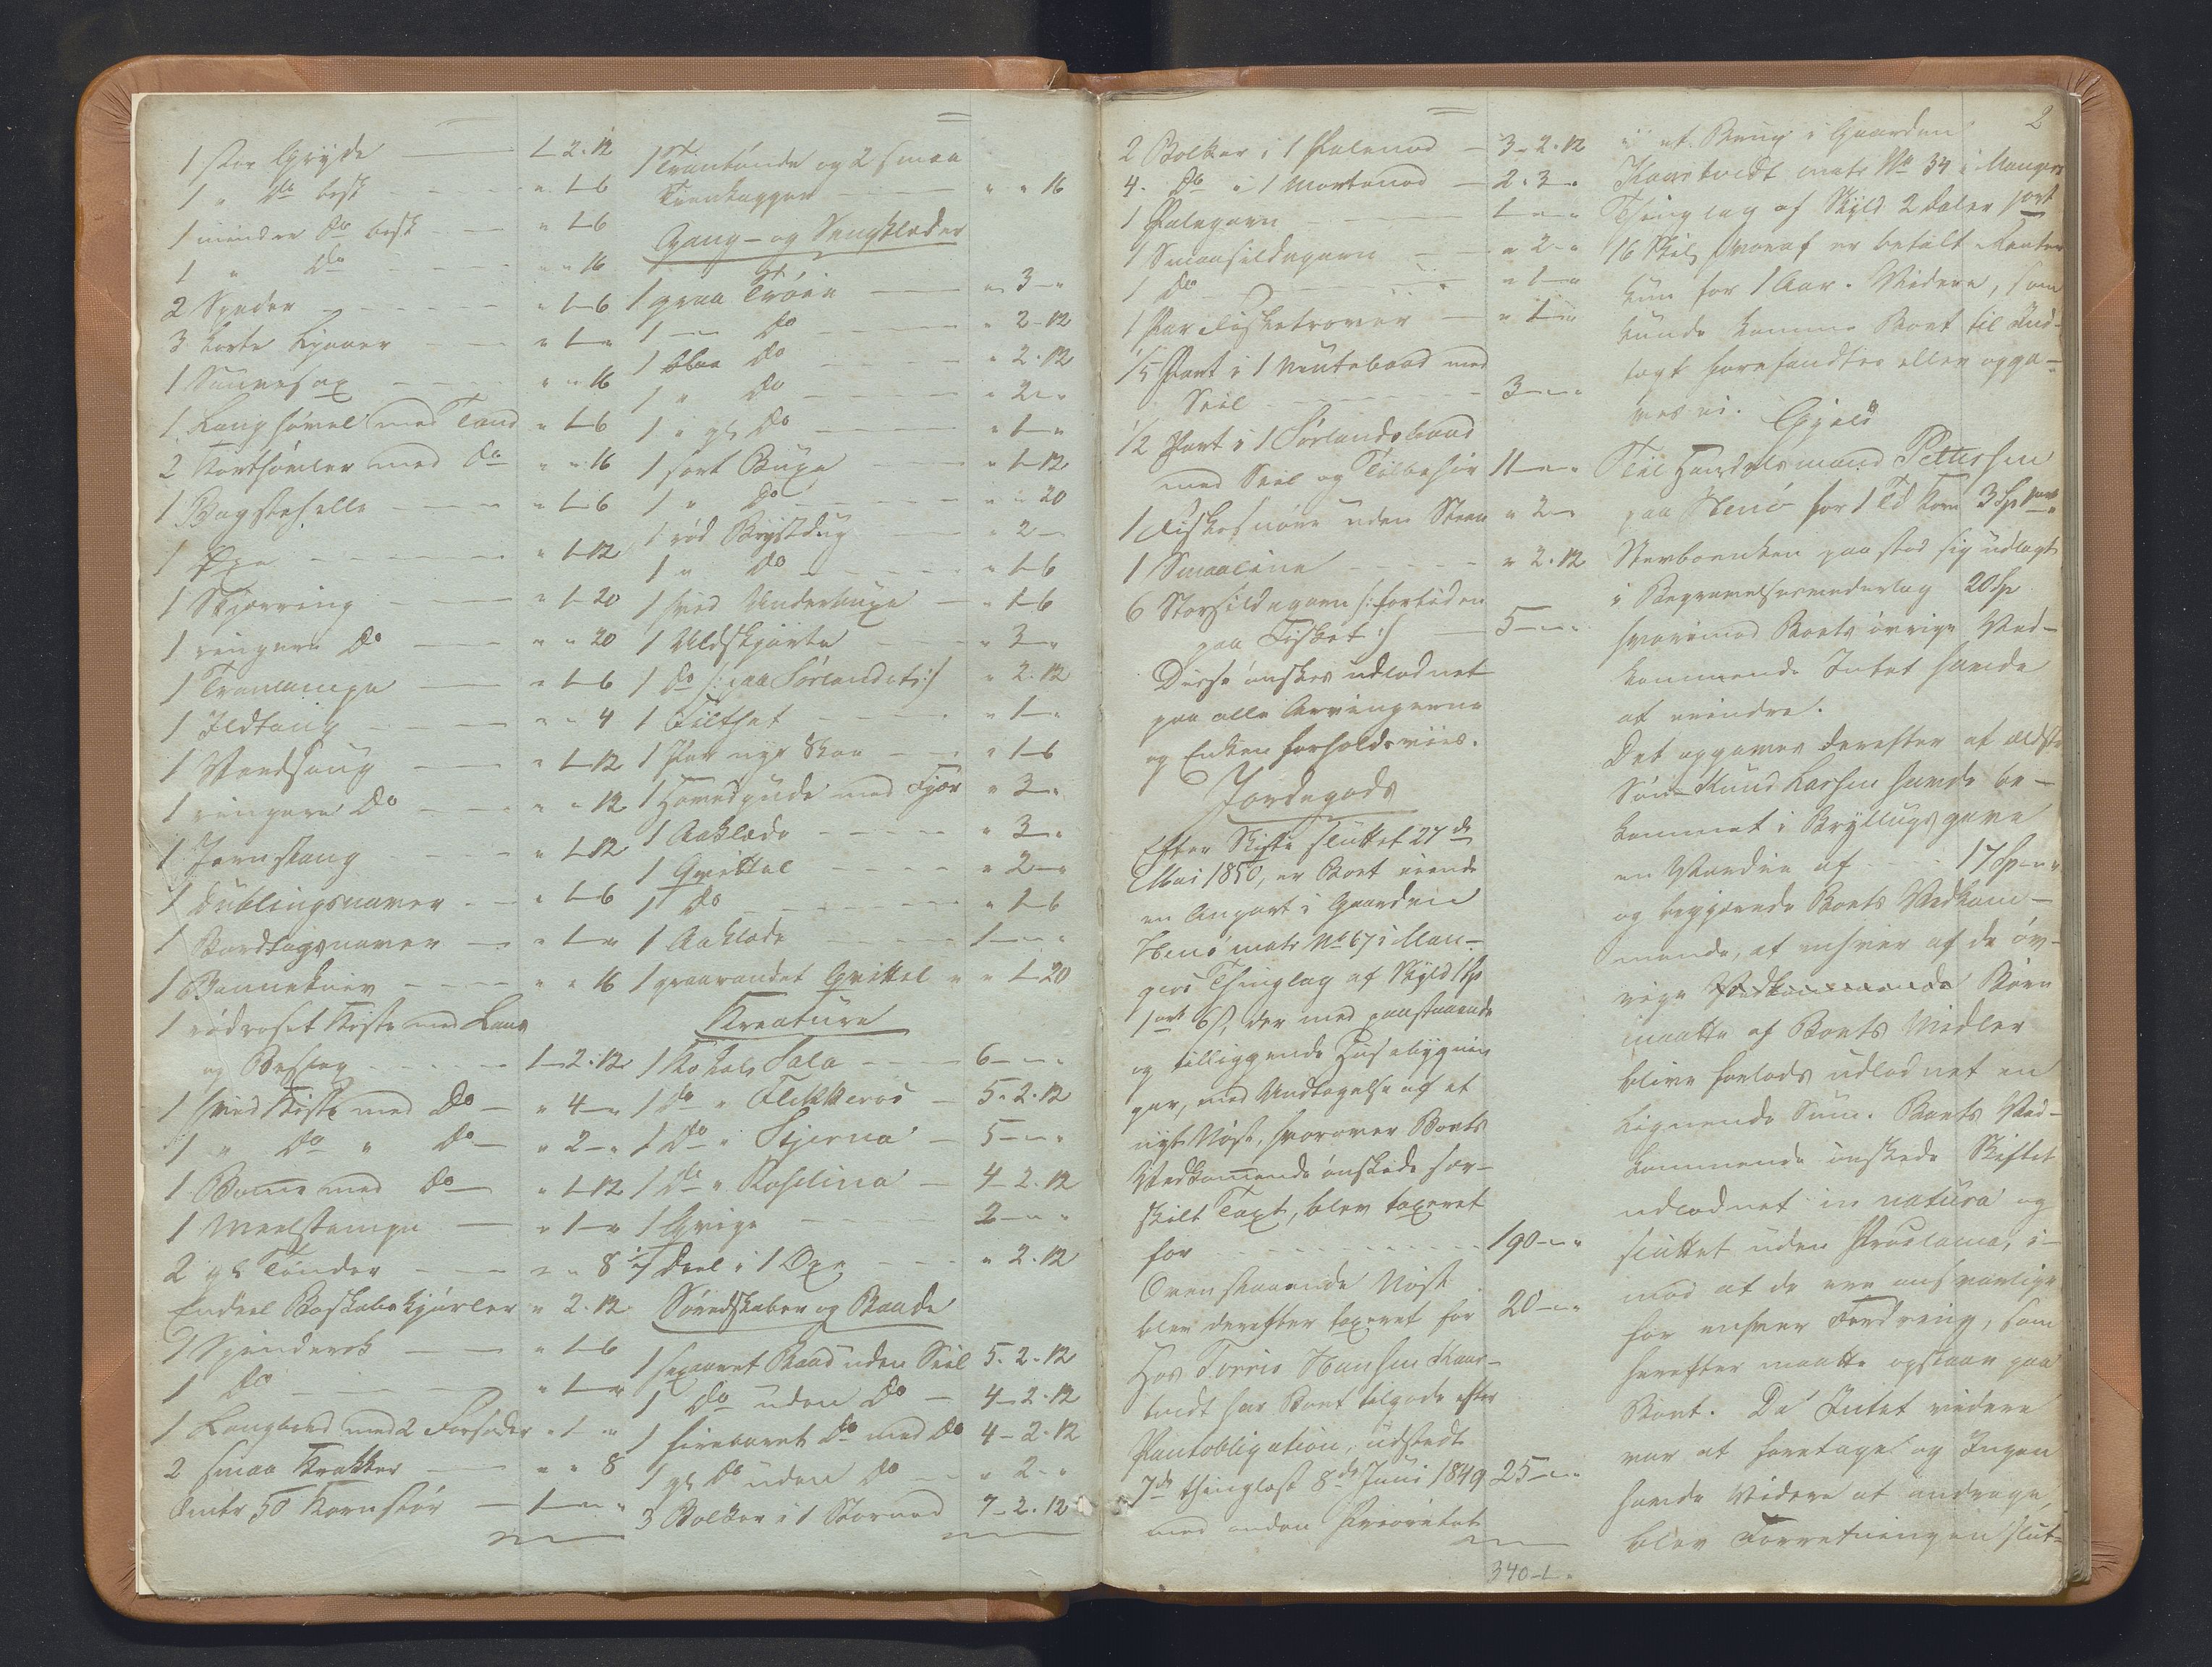 1 stor Gryde — 1-2-12
1 " do besk — " 1-6
1 mindre do besk — " 1-6
1 " do — " " 16
2 Spader — " 1-6
3 korte Ljaaer — " 1 "
1 Sauesax — " " 16
1 Langhøvel med Tand " 1-6
2 Korthøvler med do " " 16
1 Bagstehelle — " 1-6
1 Øxe — " 1-12
1 Skjæring — " 1-20
1 ringere do — " " 20
1 Tranlampe — " 1-6
1 Ildtang — " " 4
1 Vandsaug — " 1-12
1 ringere do — " " 12
1 Jernstang — " 1-12
1 Dublingsnaver — " 1-6
1 Bordlagsnaver — " 1 "
1 Bannekniv — " " 16
1 rødroset Kiste med Laas
og Beslag — 1-2-12
1 hvid Kiste med do — " 4 "
1 " do " do — " 2 "
1 Bomme med do — " 1-12
1 Meelstampe — " 1 "
2 gl Tønder — " " 8
Endeel Boskabskjørler " 2-12
1 Spinderok — " 1-6
1 do — " 1 "
1 Langbord med 2 Forsæder " 1 "
2 smaa Krakker — " " 8
Omtr 50 Kornstør — 1 " "
1 Trantønde og 2 smaa
Trankagger — " " 16
Gang- og Sengklæder
1 graa Trøie — " 3 "
1 — do — " 2-12
1 blaa do — " 2-12
1 " do — " 2 "
1 " gl do — " 1 "
1 sort Buxe — " 1-12
1 " do — " " 20
1 rød Brystdug — " 2 —
1 " do — " 1-6
1 hvid Underbuxe — " 1-6
1 Uldskjorte — " 3 "
1 do /: paa Sørlandet :/ " 2-12
1 Filthat — " 1 "
1 Par nye Skoe — " 1-6
1 Hovedpude med Fjær " 3 "
1 Aaklæde — " 3 "
1 Grittel — " 2 "
1 do — " 1-6
1 Aaklæde — 1 " "
1 graarandet Grittel " " 1-20
Kreature
1 Ko kaldt Sala — 6 " "
1 do " Flekkeros — 5-2-12
1 do " Stjerna — 5 " "
1 do " Roselina — 4-2-12
1 Qvige — 2 " "
1/7 Deel i 1 Oxe — " 2-12
Søredskaber og Baade
1 sexaaret Baad uden Seil 5-2-12
1 do uden do — 4-2-12
1 firebaaret do med do 4-2-12
1 gl do uden do — " 2 "
3 Bolker i 1 Stornod 7-2-12
2 Bolker i 1 Palenod — 3-2-12
4 do i 1 Mortenod — 2-3 "
1 Palegarn — 1 " "
1 Smaasildegarn — " 2 "
1 do — " 1 "
1 Par Fisketrover — " 1 "
1/5 Part i 1 Nutebaad med
Seil — 3 " "
1/2 Part i 1 Sørlandsbaad
med Seil og Tilbehør 11 " "
1 Fiskesnøre uden Steen " 2 "
1 Smaaline — " 2-12
6 Storsildegarn /: fortiden
paa Fisket :/ — 5 " "
Disse ønskes udlodnet
paa alle Arvingerne
og Enken forholdsviis.
Jordegods
Efter Skifte sluttet 27de
Mai 1850, er Boet eiende
en Anpart i Gaarden
Henø matr No 67 i Man-
gers Thinglag af Skyld 1 Sp
1 ort 6 s, der med paastaaende
og tilliggende Husebygnin
ger, med Undtagelse af et
nyt Nøst, hvorover Boets
Vedkommende ønskede sær-
skilt Taxt, blev taxeret
for — 190 " "
Ovenstaaende Nøst
blev derefter taxeret for 20 " "
Hos Torris Hansen Kaar-
tvedt har Boet tilgode efter
Pantobligation, udstedt
7de thinglæst 8de Juni 1849 25 " "
med anden Prioritet
340-1-"
2
i et Brug i Gaarden
Kaartvedt matr No 34 i Mangers
Thinglag af Skyld 2 Daler 1 ort
16 Skil, hvoraf er betalt Renter
kun for 1 Aar. Videre, som
kunde komme Boet til Ind-
tægt forefandtes eller opga-
ves ei.
Gjeld
Til Handelsmand Pettersen
paa Henø for 1 Td Korn 3 Sp
Stervboenken paastod sig udlagt
i Begravelsesvederlag 20 Sp
hvorimod Boets øvrige Ved-
kommende Intet havde
at erindre.
Det opgaves derefter at ældste
Søn Knud Larsen havde be-
kommet i Bryllupsgave
en Værdie af — 17 Sp " "
og begjærede Boets Vedkom-
mende, at enhver af de øv-
rige Vedkommende Børn
maatte af Boets Midler
blive forlods udlodnet en
lignende Sum. Boets Ved-
kommende ønskede Skiftet
udlodnet in natura og
sluttet uden Proclama, i-
mod at de ere ansvarlige
for enhver Fordring, som
herefter maatte opstaae paa
Boet. Da Intet videre
var at foretage og Ingen
havde Videre at andrage,
blev Forretningen slut-